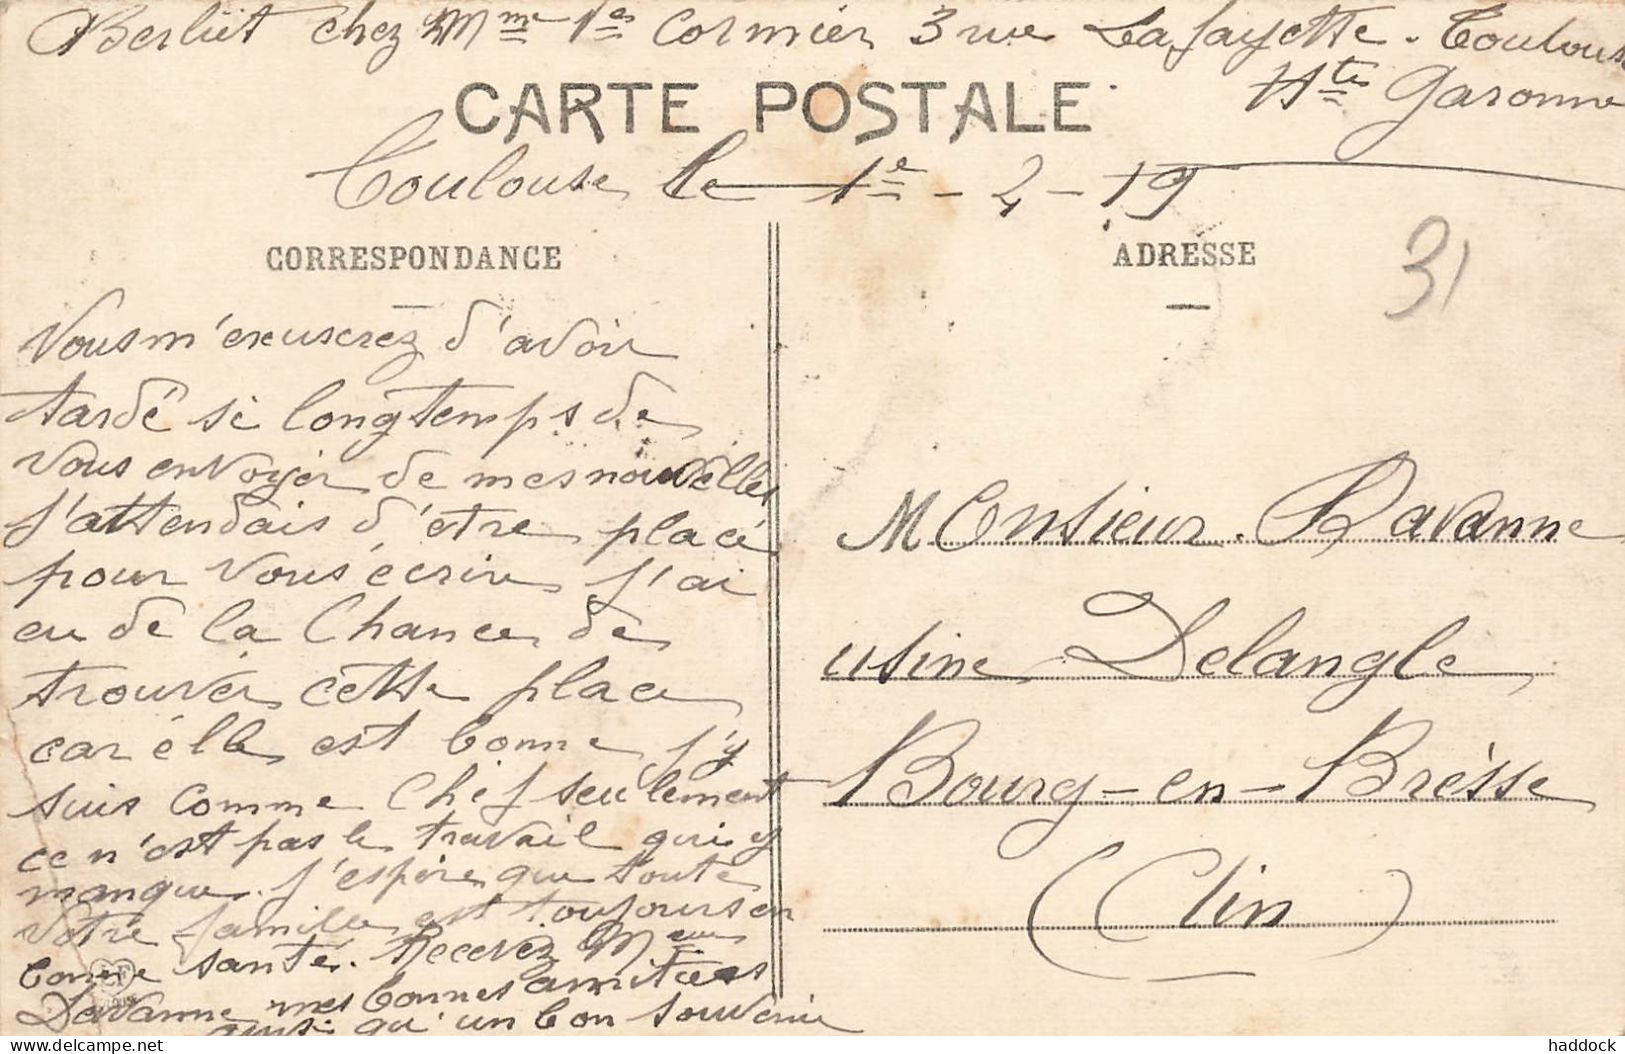 Berliet chez Mme Ve Cormier 3 rue Lafayette. Toulouse
Hte Garonne
CARTE POSTALE
Toulouse, le 1e - 2 - 19
CORRESPONDANCE
Vous m'excuserez d'avoir
tardé si longtemps de
vous envoyer de mes nouvelles
j'attendais d'être placé
pour vous écrire j'ai
eu de la chance de
trouver cette place
car elle est bonne j'y
suis comme chef seulement
ce n'est pas le travail qui y
manque. J'espère que toute
votre famille est toujours en
bonne santé. Recevez Mr
Ravanne mes bonnes amitiées
ainsi qu'un bon souvenir
ADRESSE
31
Monsieur. Ravanne
usine Delangle
Bourg-en-Brèsse
(Ain)
haddock